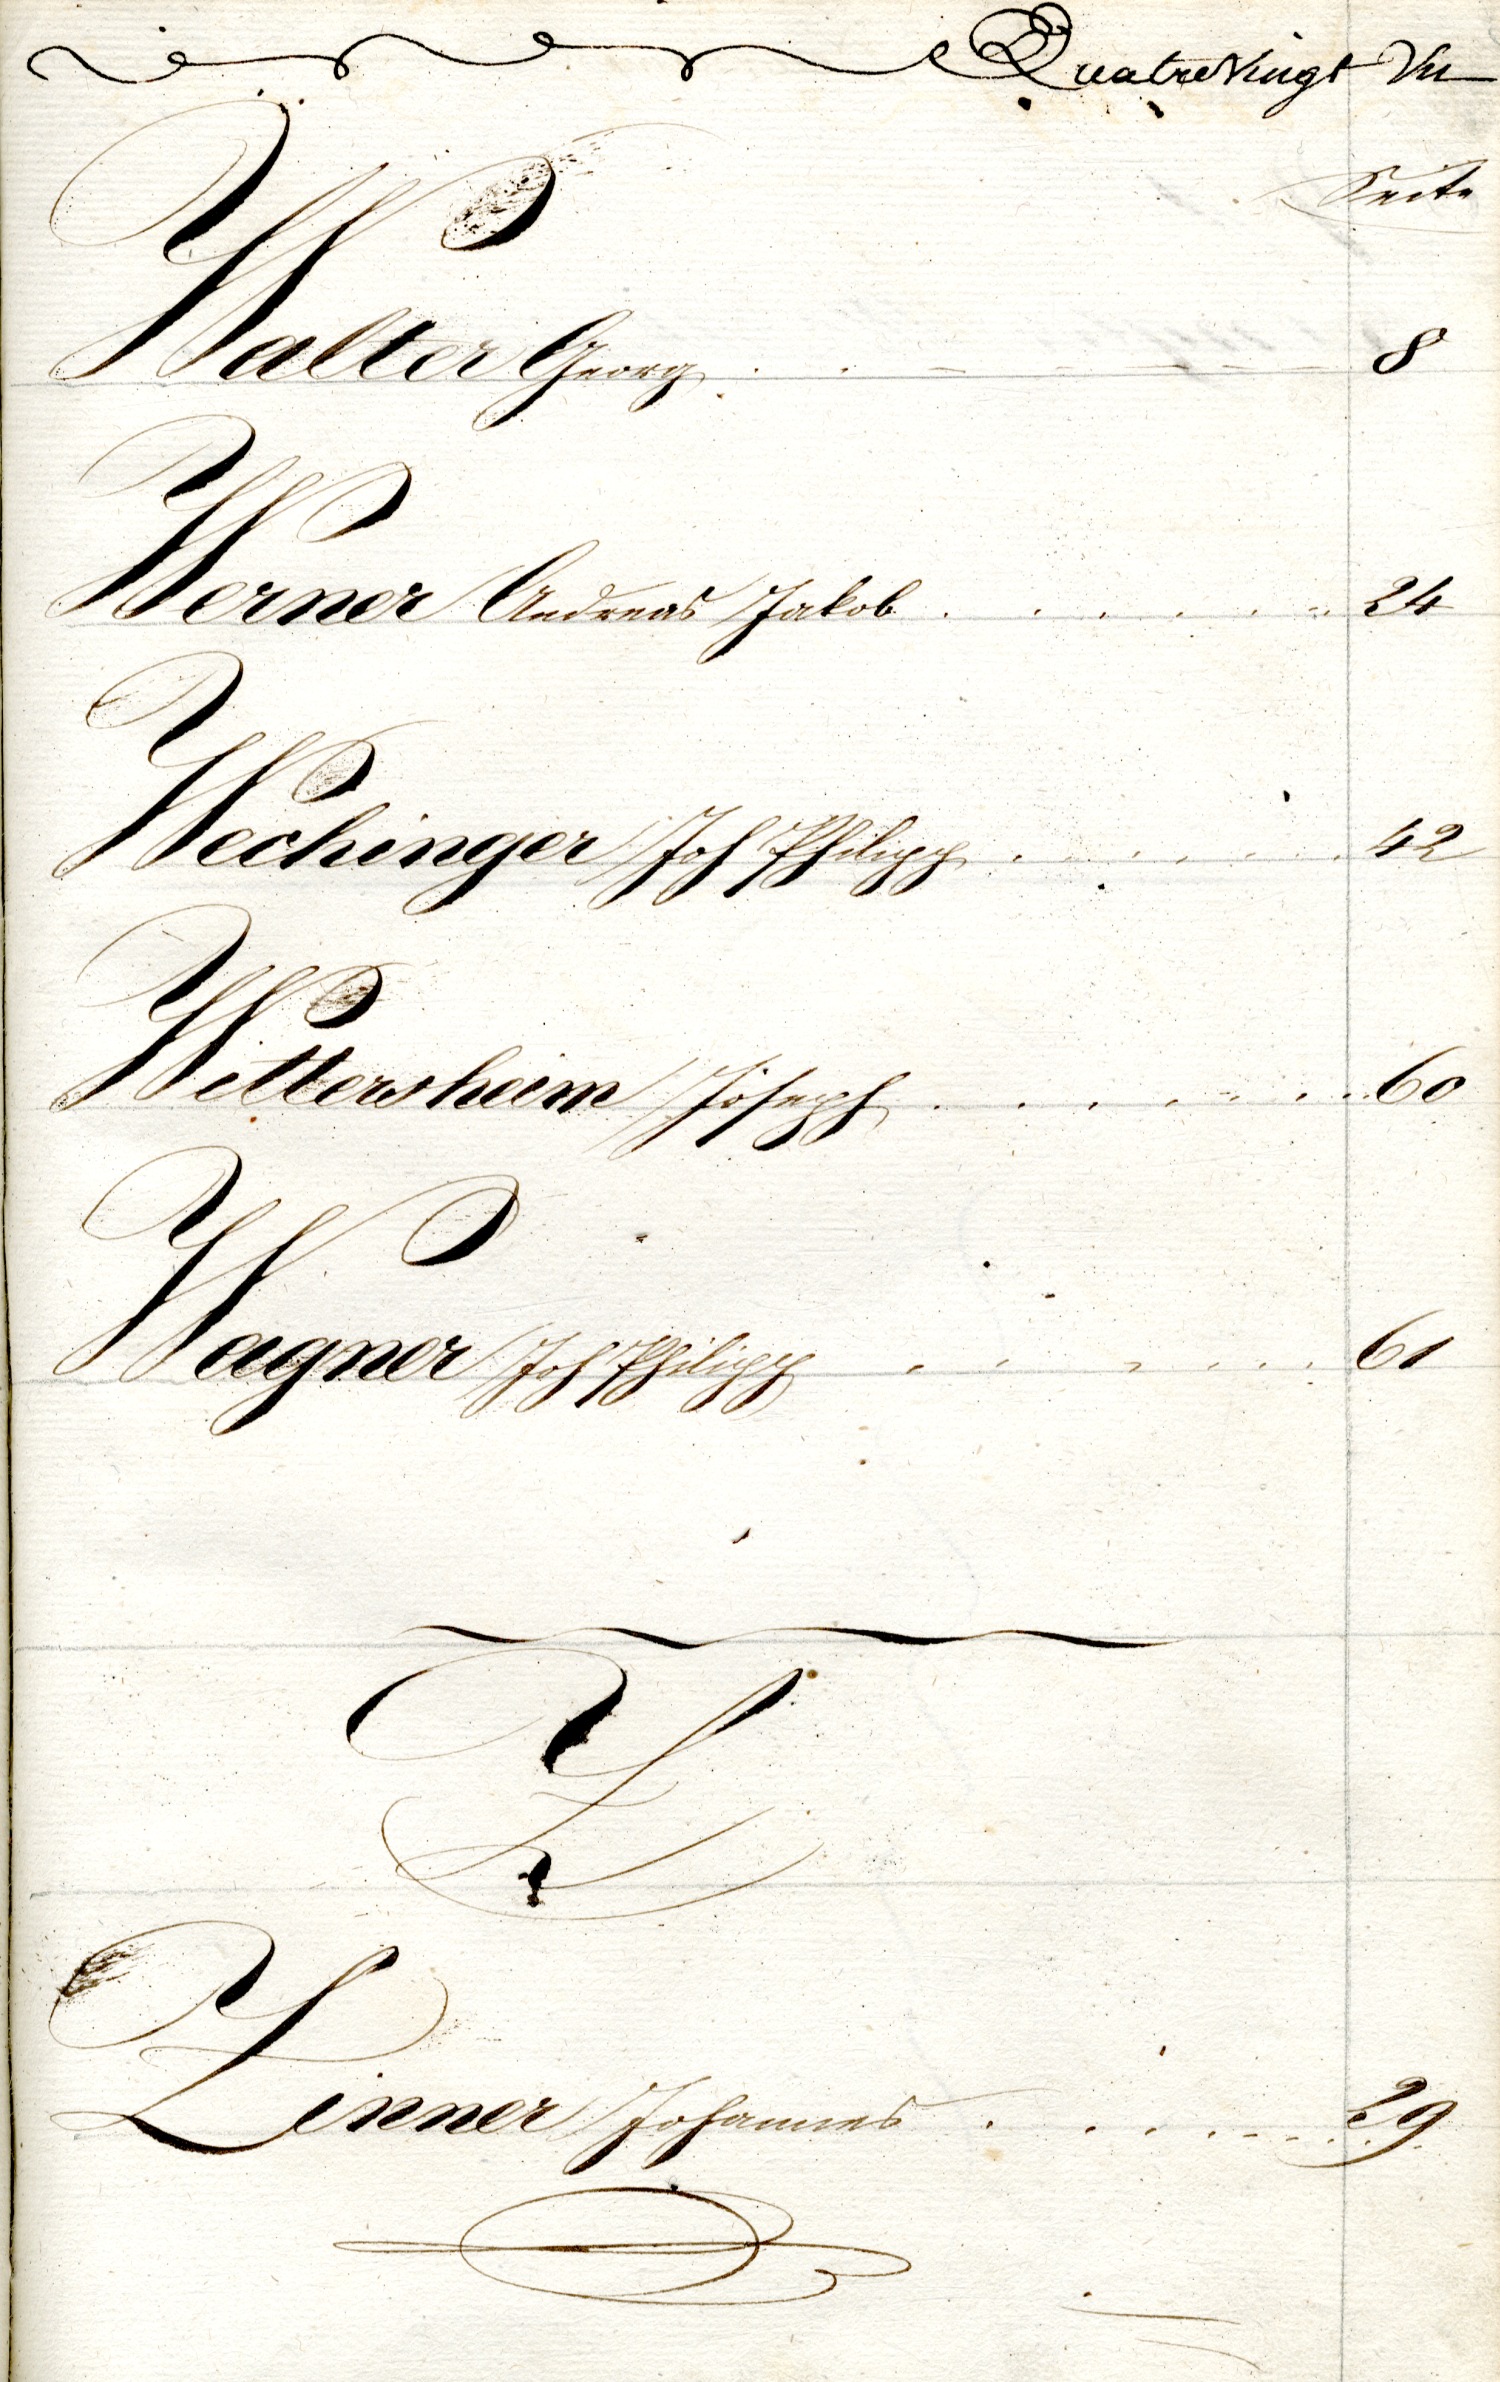 Quatrevingt Un
Seite
Walter Georg 8
Werner Andreas Jakob 24
Wechinger Joh Philipp 42
Wittersheim Joseph 60
Wagner Joh Philipp 61
Z
Zinner Johannes 29